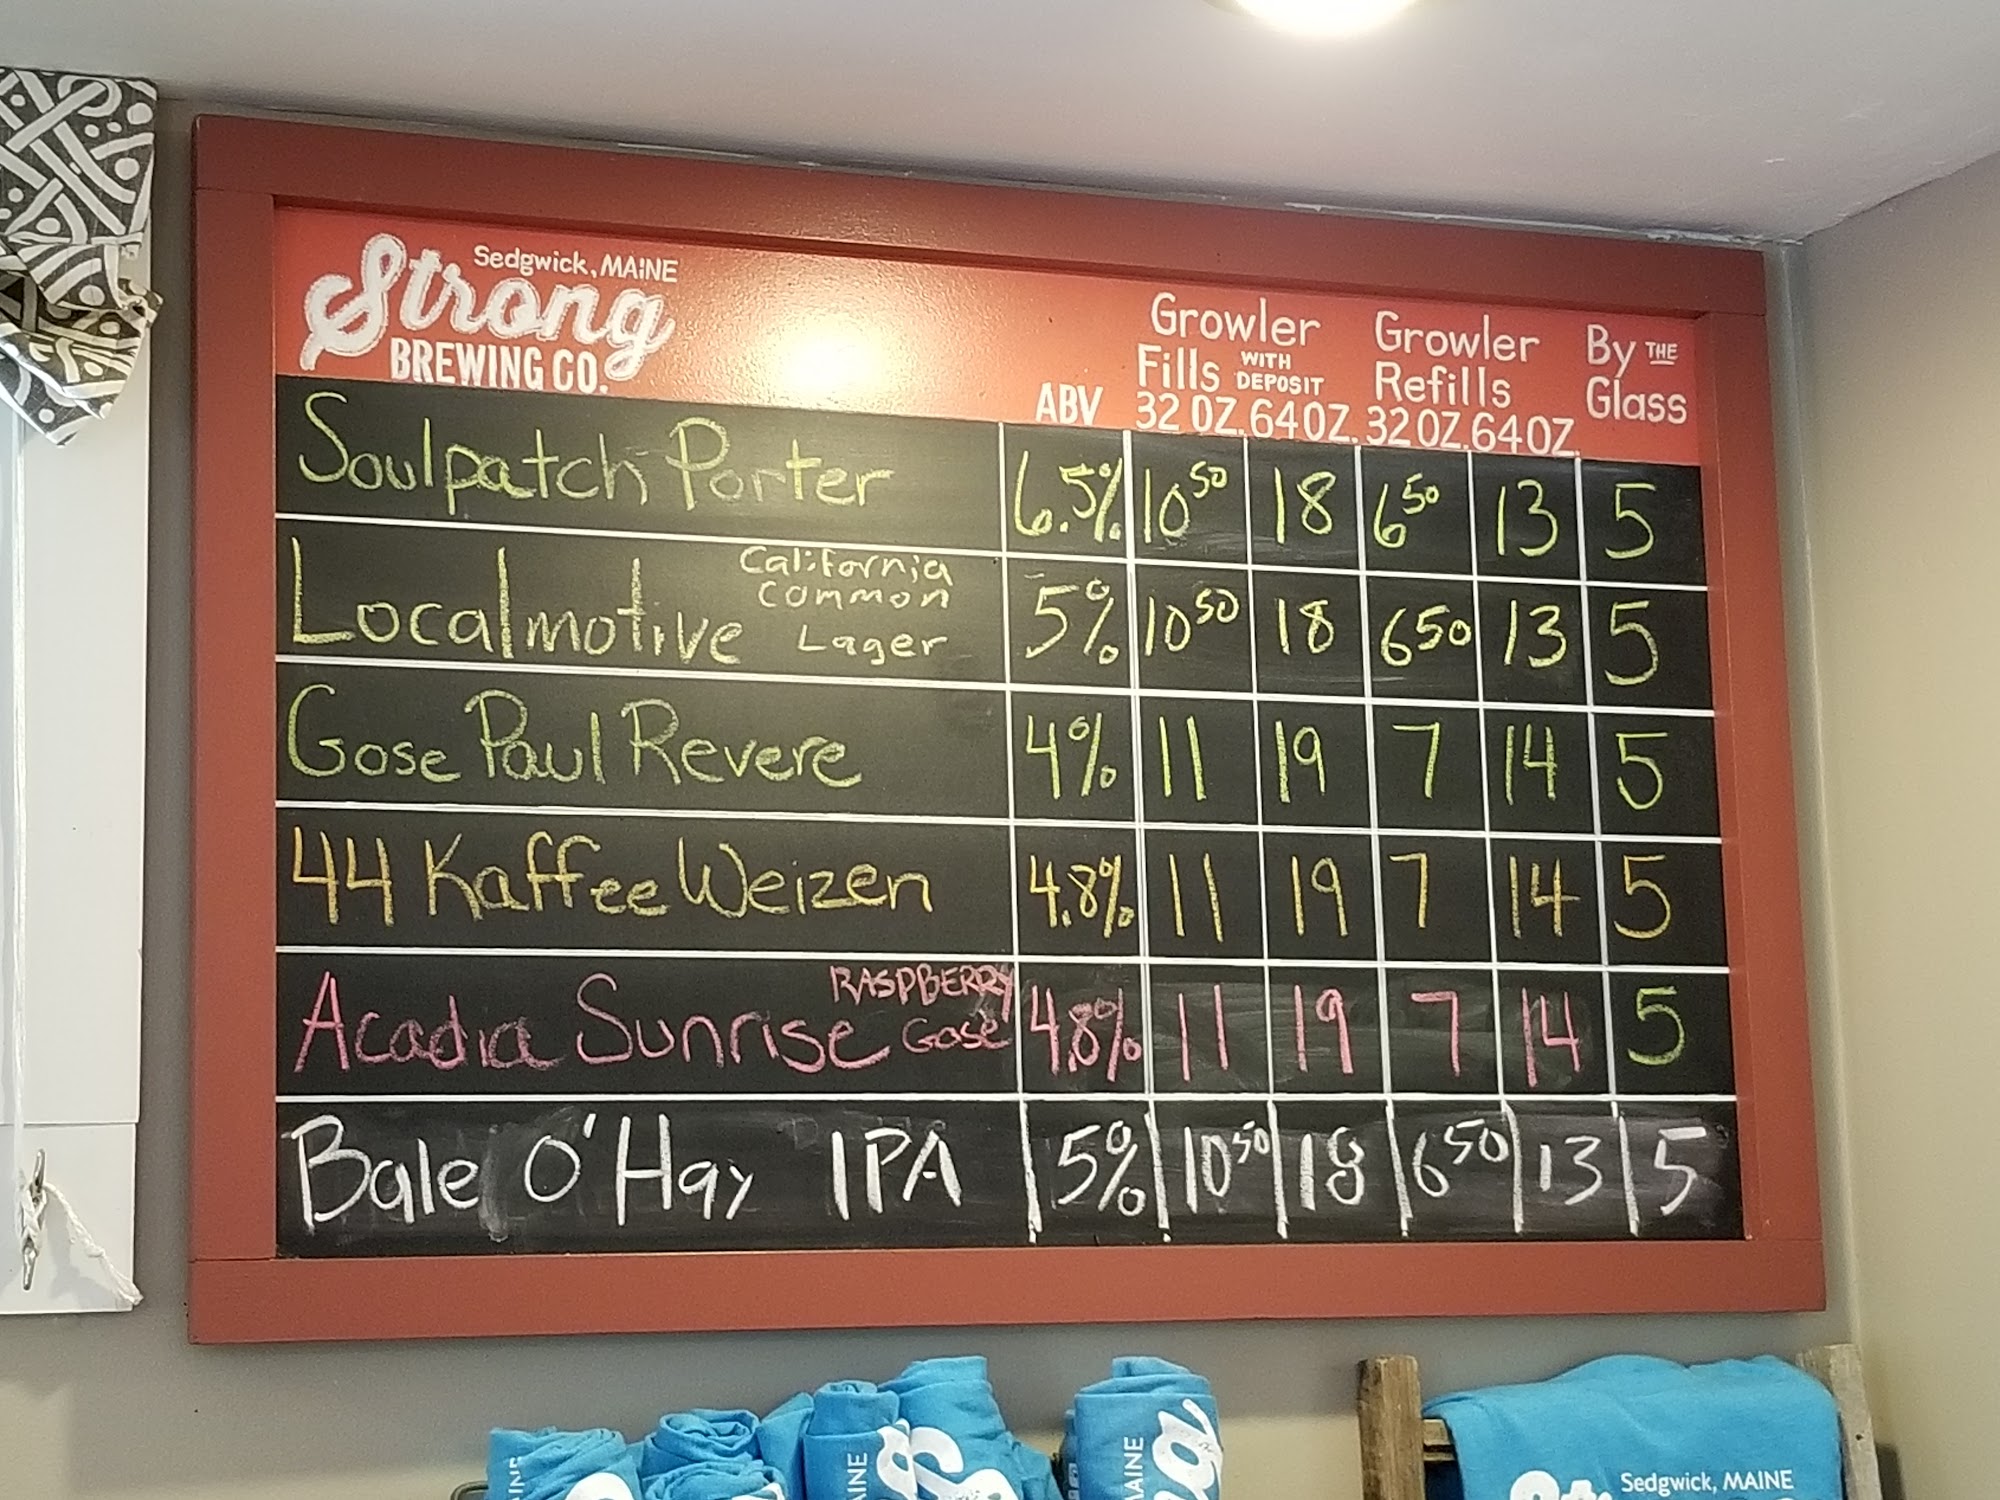 Sedgwick, MAINE
Strong
BREWING CO.
ABV
Growler Fills WITH DEPOSIT
32 OZ. 64 OZ.
Growler Refills
32 OZ. 64 OZ.
By THE Glass
Soulpatch Porter 6.5% 10 50 18 6 50 13 5
Localmotive California Common Lager 5% 10 50 18 6 50 13 5
Gose Paul Revere 4% 11 19 7 14 5
44 Kaffee Weizen 4.8% 11 19 7 14 5
Acadia Sunrise RASPBERRY Gose 4.8% 11 19 7 14 5
Bale O'Hay IPA 5% 10 50 18 6 50 13 5
MAINE
MAINE
Sedgwick, MAINE